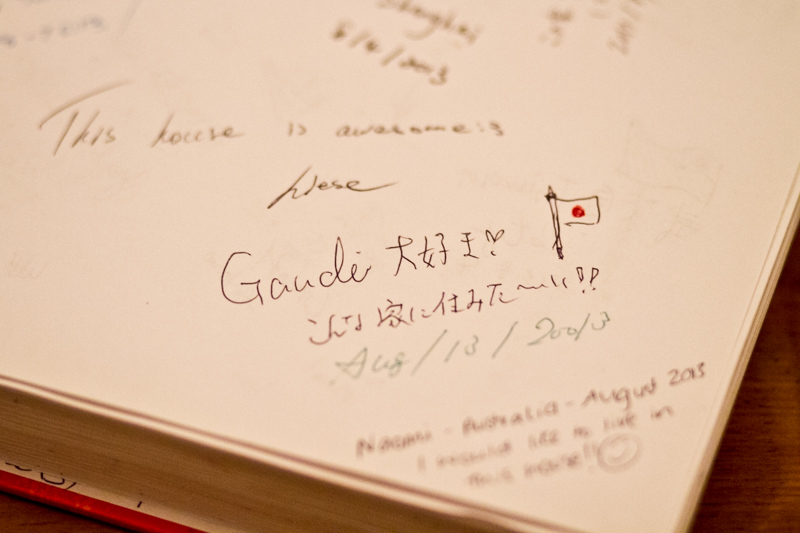 Shanghai
8/6/2013
This house is awesome:3
Liese
Gaudi 大好き!♡
こんな家に住みた〜い!!
Aug/13/20013
Naomi - Australia - August 2013
I would like to live in
this house!! ☺